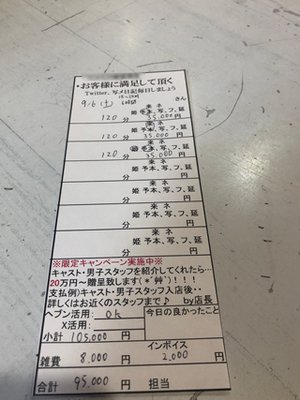 ・お客様に満足して頂く
Twitter、写メ日記毎日しましょう
9/6(土) さん
来ネ
姫 予本、写、フ、延
120 分 35,000円
来ネ
姫 予本、写、フ、延
120 分 35,000円
来ネ
姫 予本、写、フ、延
120 分 35,000円
来ネ
姫 予本、写、フ、延
分 円
来ネ
姫 予本、写、フ、延
分 円
来ネ
姫 予本、写、フ、延
分 円
来ネ
姫 予本、写、フ、延
分 円
※限定キャンペーン実施中※
キャスト・男子スタッフを紹介してくれたら…
20万円～贈呈致します(*´艸`)！！！
支払例)キャスト・男子スタッフ入店後･･
詳しくはお近くのスタッフまで♪ by店長
ヘブン活用: Ok 今日の良かったこと
X活用:
小計 105,000 円
インボイス
雑費 8,000 円 2,000 円
合計 95,000 円 担当